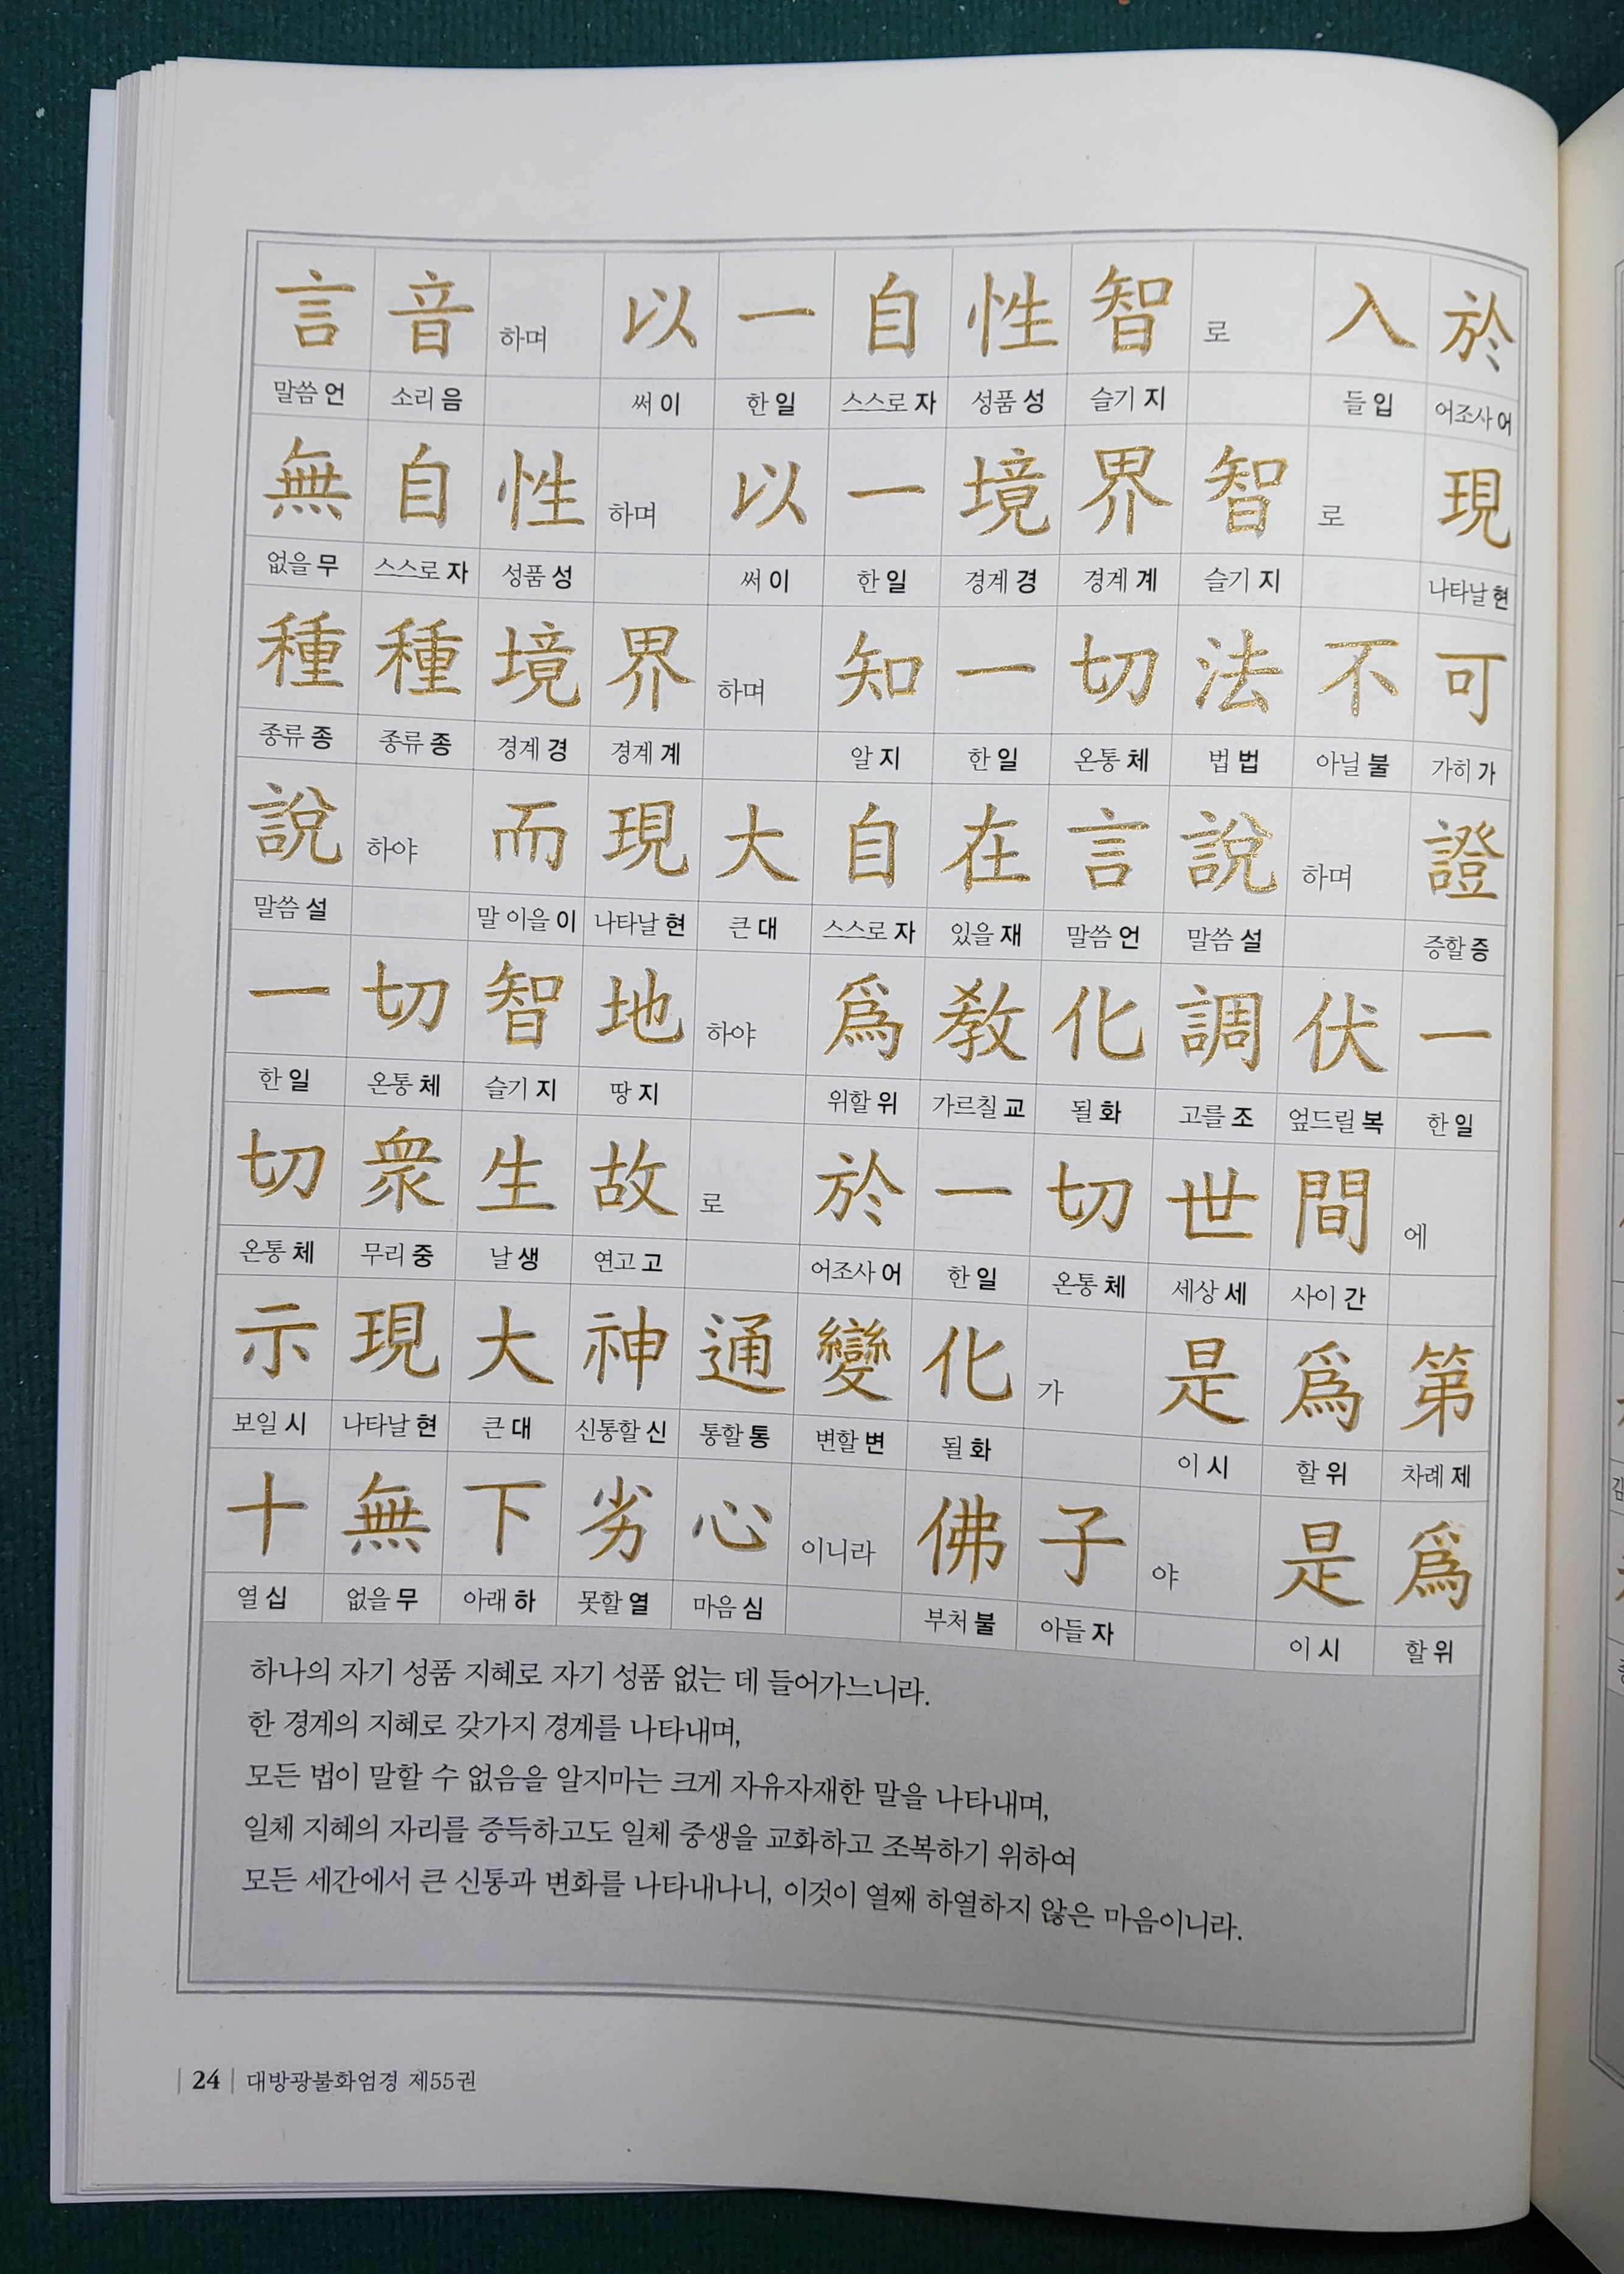 言音하며 以一自性智로 入於
말씀 언 소리 음 써 이 한 일 스스로 자 성품 성 슬기 지 들 입 어조사 어
無自性하며 以一境界智로 現
없을 무 스스로 자 성품 성 써 이 한 일 경계 경 경계 계 슬기 지 나타날 현
種種境界하며 知一切法不可
종류 종 종류 종 경계 경 경계 계 알 지 한 일 온통 체 법 법 아닐 불 가히 가
說하야 而現大自在言說하며 證
말씀 설 말 이을 이 나타날 현 큰 대 스스로 자 있을 재 말씀 언 말씀 설 증할 증
一切智地하야 爲教化調伏一
한 일 온통 체 슬기 지 땅 지 위할 위 가르칠 교 될 화 고를 조 엎드릴 복 한 일
切衆生故로 於一切世間에
온통 체 무리 중 날 생 연고 고 어조사 어 한 일 온통 체 세상 세 사이 간
示現大神通變化가 是爲第
보일 시 나타날 현 큰 대 신통할 신 통할 통 변할 변 될 화 이 시 할 위 차례 제
十無下劣心이니라 佛子야 是爲
열 십 없을 무 아래 하 못할 열 마음 심 부처 불 아들 자 이 시 할 위
하나의 자기 성품 지혜로 자기 성품 없는 데 들어가느니라.
한 경계의 지혜로 갖가지 경계를 나타내며,
모든 법이 말할 수 없음을 알지마는 크게 자유자재한 말을 나타내며,
일체 지혜의 자리를 증득하고도 일체 중생을 교화하고 조복하기 위하여
모든 세간에서 큰 신통과 변화를 나타내나니, 이것이 열째 하열하지 않은 마음이니라.
| 24 | 대방광불화엄경 제55권